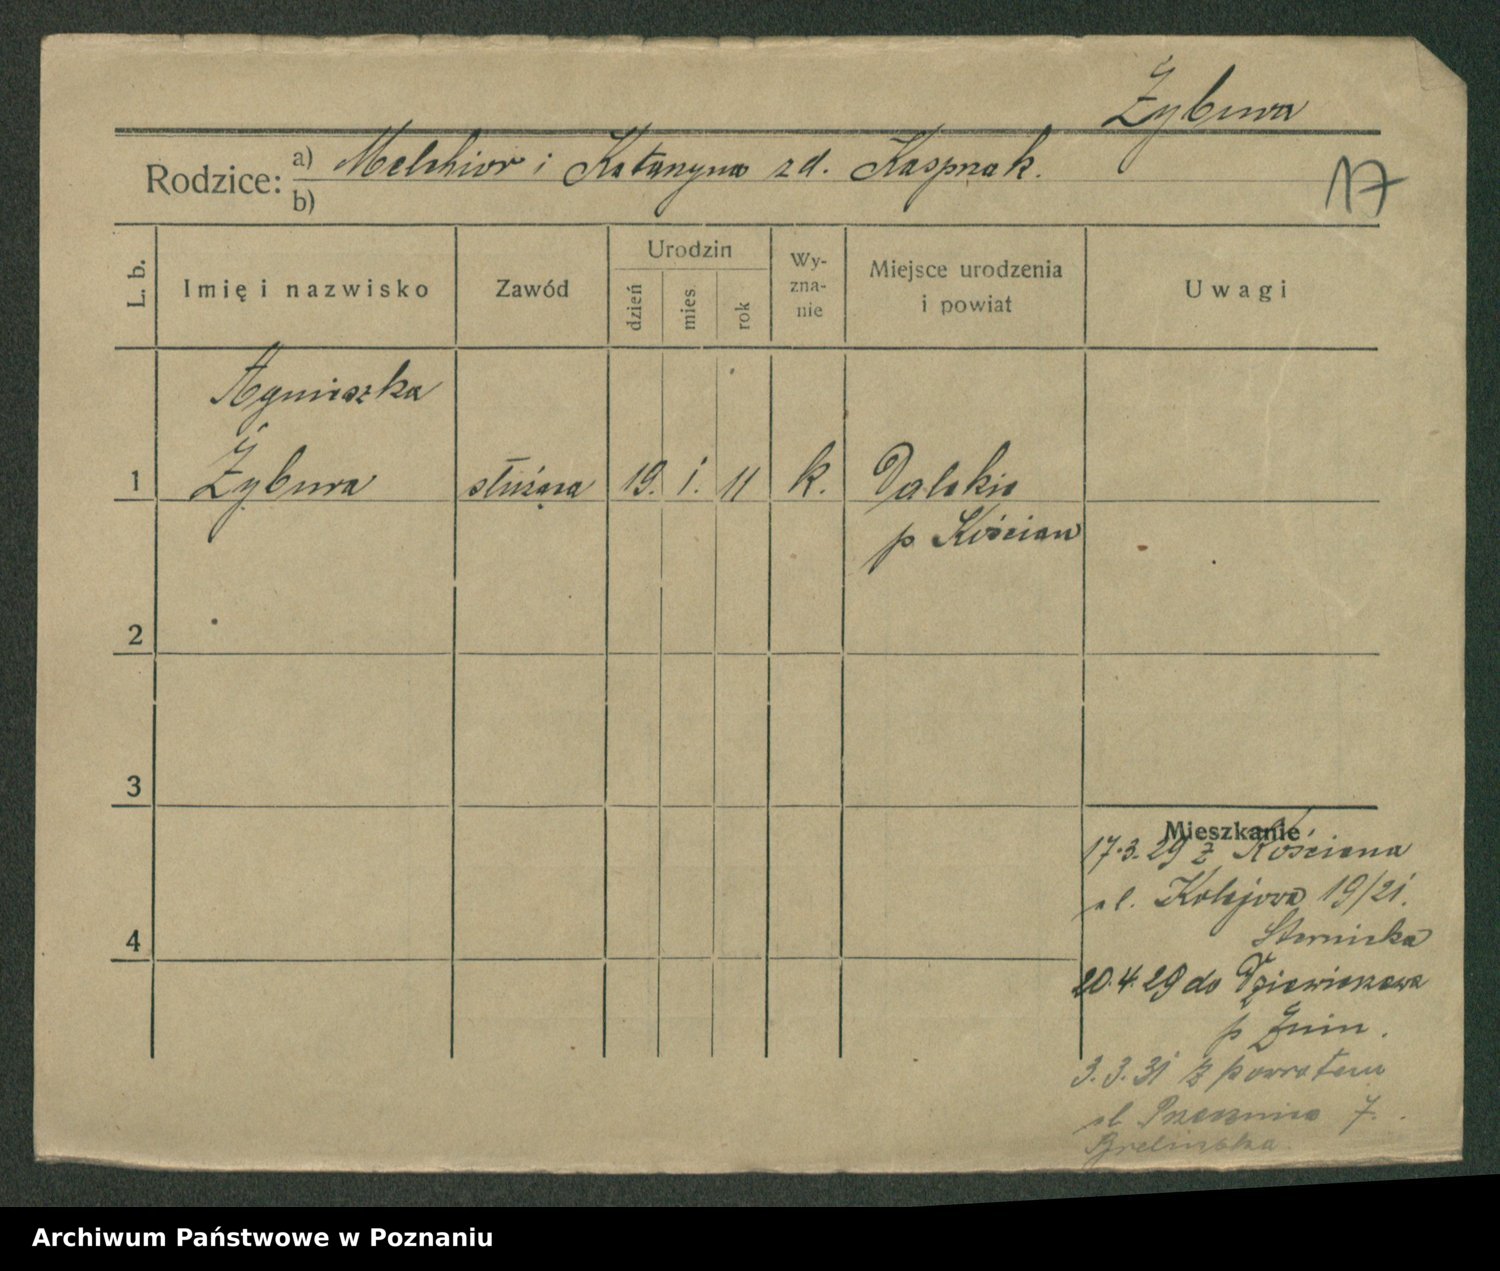 Żybura
Rodzice: a) Melchior i Katarzyna zd. Kasprzak.
b)
17
L. b.
Imię i nazwisko
Zawód
Urodzin
dzień
mies
rok
Wy-
zna-
nie
Miejsce urodzenia
i powiat
Uwagi
Agnieszka
1 Żybura służąca 19. i. 11 k. Dalekie
p Kościan
2
3
Mieszkanie
17.3.29 z Kościana
ul. Kolejowa 19/21.
4
20.4.29 do
p Żnin.
3.3.31 z powrotem
ul 7.
Archiwum Państwowe w Poznaniu